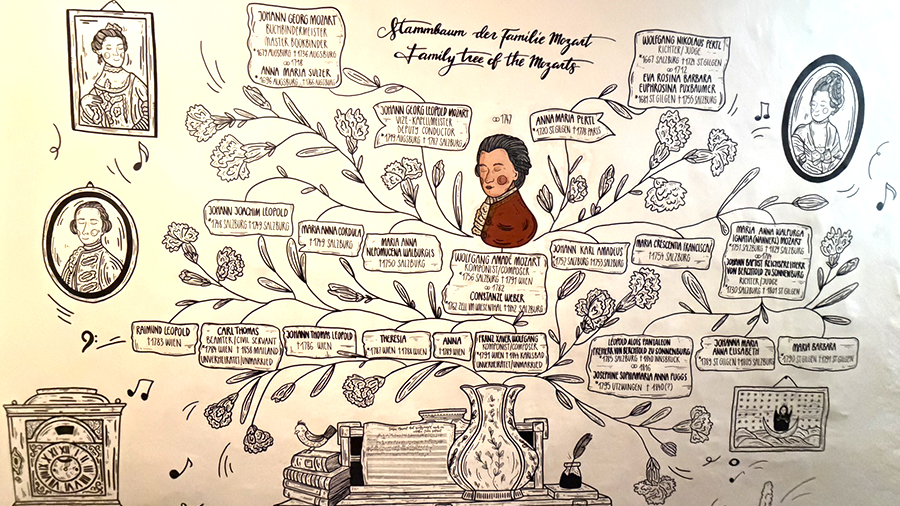 Stammbaum der Familie Mozart
Family tree of the Mozarts
JOHANN GEORG MOZART
BUCHBINDERMEISTER
MASTER BOOKBINDER
*1679 AUGSBURG †1736 AUGSBURG
∞ 1718
ANNA MARIA SULZER
*1696 AUGSBURG †1766 AUGSBURG
WOLFGANG NIKOLAUS PERTL
RICHTER/JUDGE
*1667 SALZBURG †1724 ST. GILGEN
∞ 1712
EVA ROSINA BARBARA
EUPHROSINA PUXBAUMER
*1681 ST. GILGEN †1755 SALZBURG
JOHANN GEORG LEOPOLD MOZART
VIZE-KAPELLMEISTER
DEPUTY CONDUCTOR
*1719 AUGSBURG †1787 SALZBURG
∞ 1747
ANNA MARIA PERTL
*1720 ST. GILGEN †1778 PARIS
JOHANN JOACHIM LEOPOLD
*1748 SALZBURG †1749 SALZBURG
MARIA ANNA CORDULA
*†1749 SALZBURG
MARIA ANNA
NEPOMUCENA WALBURGIS
*†1750 SALZBURG
WOLFGANG AMADÉ MOZART
KOMPONIST/COMPOSER
*1756 SALZBURG †1791 WIEN
∞ 1782
CONSTANZE WEBER
*1762 ZELL IM WIESENTHAL †1842 SALZBURG
JOHANN KARL AMADEUS
*1752 SALZBURG †1753 SALZBURG
MARIA CRESCENTIA FRANCISCA
*†1754 SALZBURG
MARIA ANNA WALPURGA
IGNATIA (NANNERL) MOZART
*1751 SALZBURG †1829 SALZBURG
∞ 1784
JOHANN BAPTIST REICHSFREIHERR
VON BERCHTOLD ZU SONNENBURG
RICHTER/JUDGE
*1736 SALZBURG †1801 ST. GILGEN
RAIMUND LEOPOLD
*†1783 WIEN
CARL THOMAS
BEAMTER/CIVIL SERVANT
*1784 WIEN †1858 MAILAND
UNVERHEIRATET/UNMARRIED
JOHANN THOMAS LEOPOLD
*†1786 WIEN
THERESIA
*1787 WIEN †1788 WIEN
ANNA
*†1789 WIEN
FRANZ XAVER WOLFGANG
KOMPONIST/COMPOSER
*1791 WIEN †1844 KARLSBAD
UNVERHEIRATET/UNMARRIED
LEOPOLD ALOIS PANTALEON
FREIHERR VON BERCHTOLD ZU SONNENBURG
*1785 SALZBURG †1840 INNSBRUCK
∞ 1816
JOSEPHINE SOPHIA MARIA ANNA FUGGS
*1795 UTZWINGEN †1840(?)
JOHANNA MARIA
ANNA ELISABETH
*1789 ST. GILGEN †1805 ST. GILGEN
MARIA BARBARA
*1790 ST. GILGEN †1791 ST. GILGEN